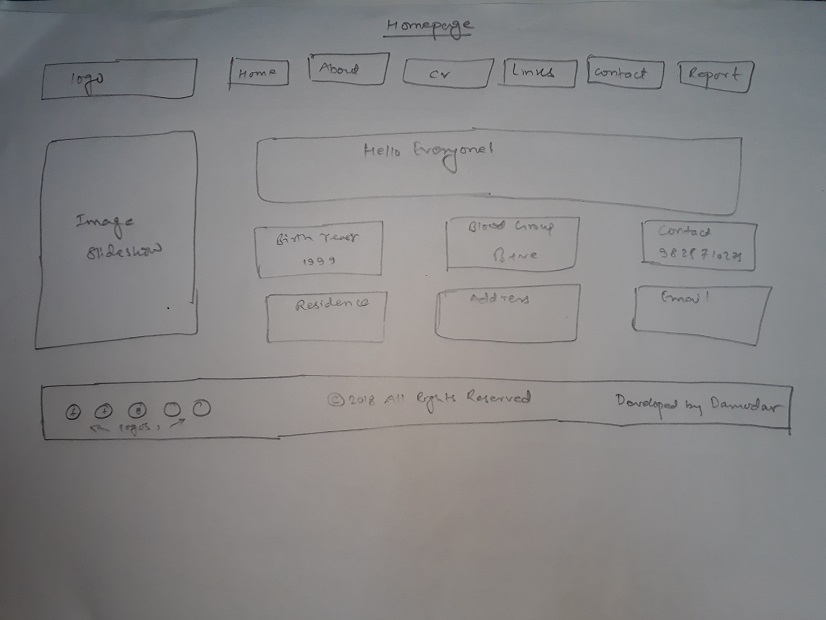 Homepage
logo
Home
About
CV
Links
Contact
Report
Hello Everyone!
Image
Slideshow
Birth Year
1999
Blood Group
B+ve
Contact
Residence
Address
Email
© 2018 All Rights Reserved
Developed by Damodar
logos